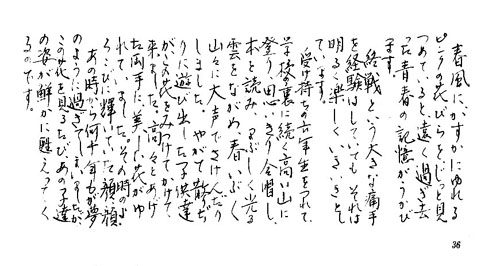 春風にかすかにゆれる
ピンクの花びらをじっと見
つめていると遠く過ぎ去
った青春の記憶がうかび
ます。
終戦という大きな痛手
を経験はしていても それは
明るく楽しくいきいきとし
ています。
受け持ちの六年生をつれて
学校の裏に続く高い山に
登り 思いきり合唱し
本を読み、まぶしく光る
雲をながめ 春いぶく
山々に大声でさけんだり
しました。やがて散りぢ
りに遊び出した子供達
がこの花をみつけてかけて
来ました。高々とあげ
た両手に美しい花がゆ
れていました。その時のよ
ろこびに輝いていた顔、顔
あの時から何十年もが夢
のように過ぎてしまいましたが
この花を見るたびあの子達
の姿が鮮かに甦えってく
るのです。
36